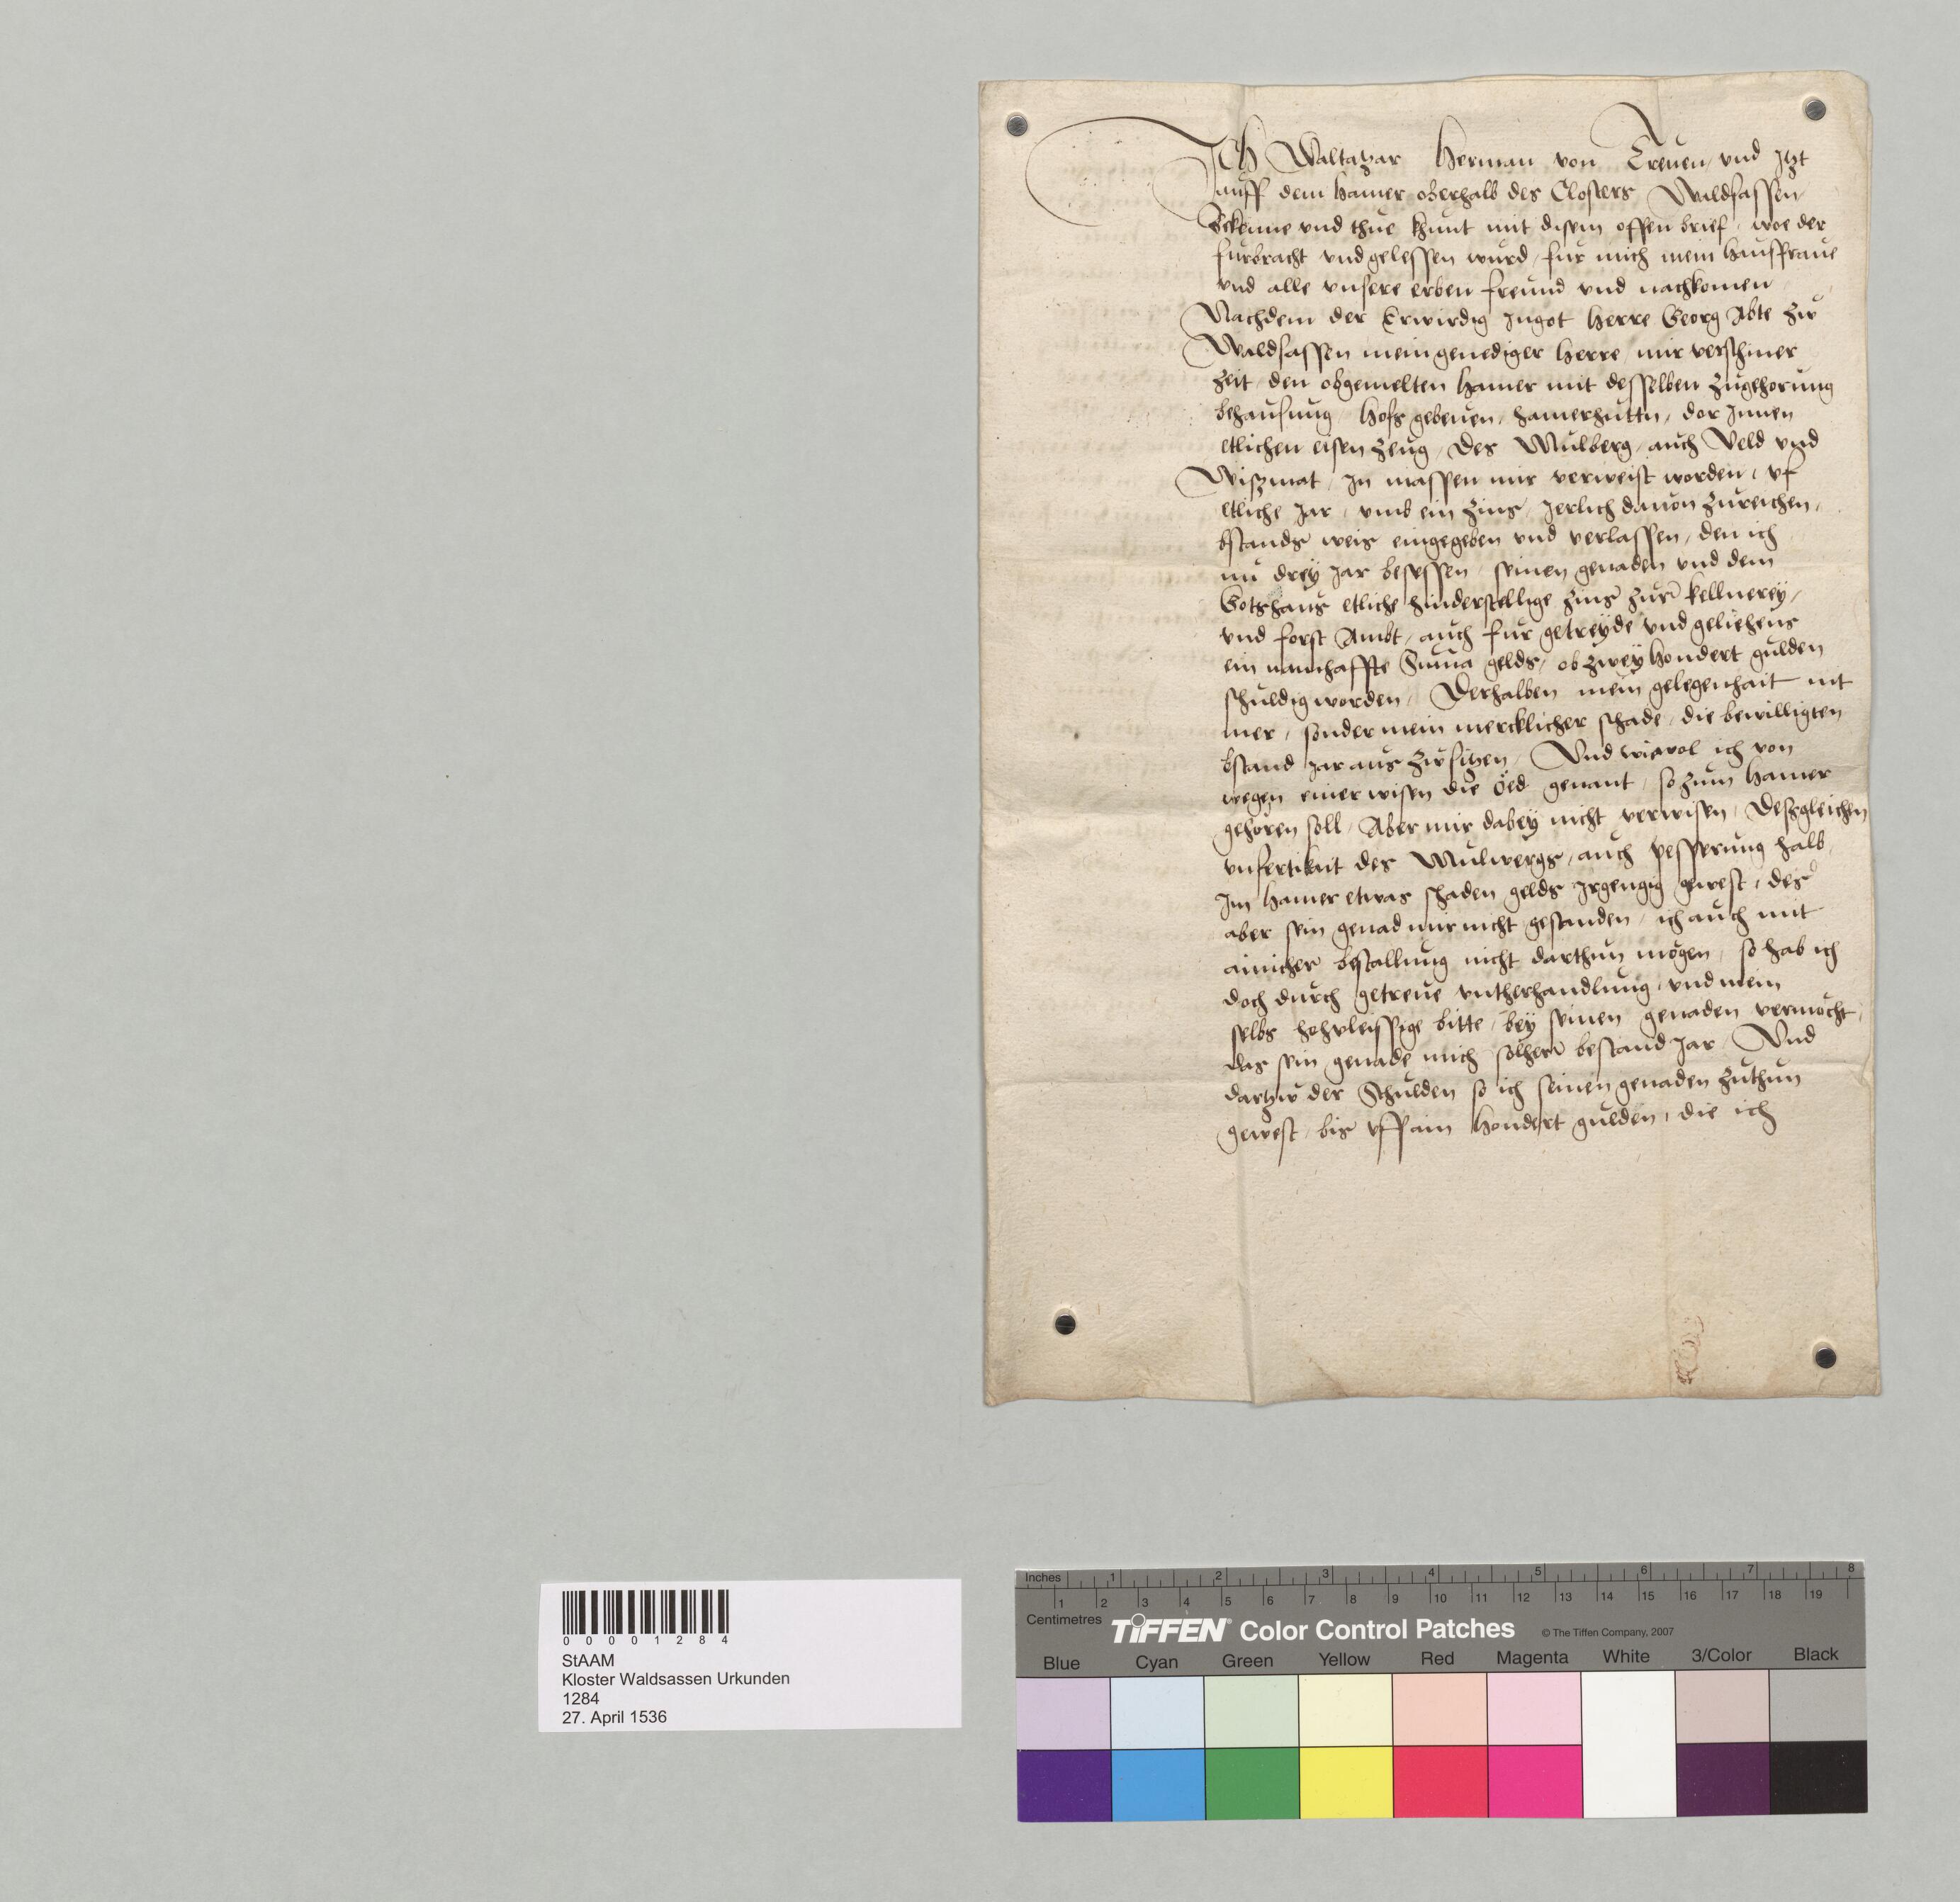 Ich Waltatzar Herman von Treuen / vnd Itzt
auff dem hamer oberhalb des Closters Waldsassen
Bekenne vnd thue khunt mit disem offen brief / woe der
furbracht vnd gelessen wurd / fur mich mein hausfraue
vnd alle vnsere erben freund vnd nachkomen
Nachdem der Erwirdig Ingot Herre Georg Abte zw
Waldsassen mein genediger herre / mir verschiner
zeit / den obgemelten hamer mit desselben zugehorung
behausung hofs gebeuen / hamerhuttn / dor Innen
etlichen eisen zeug / des Mulberg / auch Veld vnd
Wismat / In massen mir verweist worden / vf
etliche Jar / vmb ein zins / Jerlich dauon zureichen /
bstands weis eingegeben vnd verlassen / den ich
nu drey Jar besessen / seinen genaden vnd dem
Gotshaus etliche hinderstellige zins zur kellnerey /
vnd forst Ambt / auch fur getreyde vnd geliehens
ein namhaffte Suma gelds / ob zwey hondert gulden
schuldig worden / Derhalben mein gelegenhait nit
mer / sonder mein mercklicher schade / die bewilligten
bstand Jar aus zw sitzen / Vnd wiewol ich von
wegen einer wisen die Öed genant / so zum hamer
gehören soll / Aber mir dabey nicht verwisen / Desgleichen
vnfertikeit des Mulwergs / auch pesserung halb /
Im hamer etwas schaden gelds Irgengig gewest / des
aber sein genad mir nicht gestanden / ich auch mit
ainicher bestallung nicht darthun mögen / so hab ich
doch durch getreue vntherhandlung / vnd mein
selbs hohvleissige bitte / bey seinen genaden vermöcht /
das sein genade mich solher bestand Jar / Vnd
dartzw der Schulden so ich seinen genaden zuthun
gewest / bis vff ain hondert gulden / die ich
00001284
StAAM
Kloster Waldsassen Urkunden
1284
27. April 1536
Inches 1 2 3 4 5 6 7 8
1 2 3 4 5 6 7 8 9 10 11 12 13 14 15 16 17 18 19
Centimetres
TIFFEN® Color Control Patches © The Tiffen Company, 2007
Blue Cyan Green Yellow Red Magenta White 3/Color Black